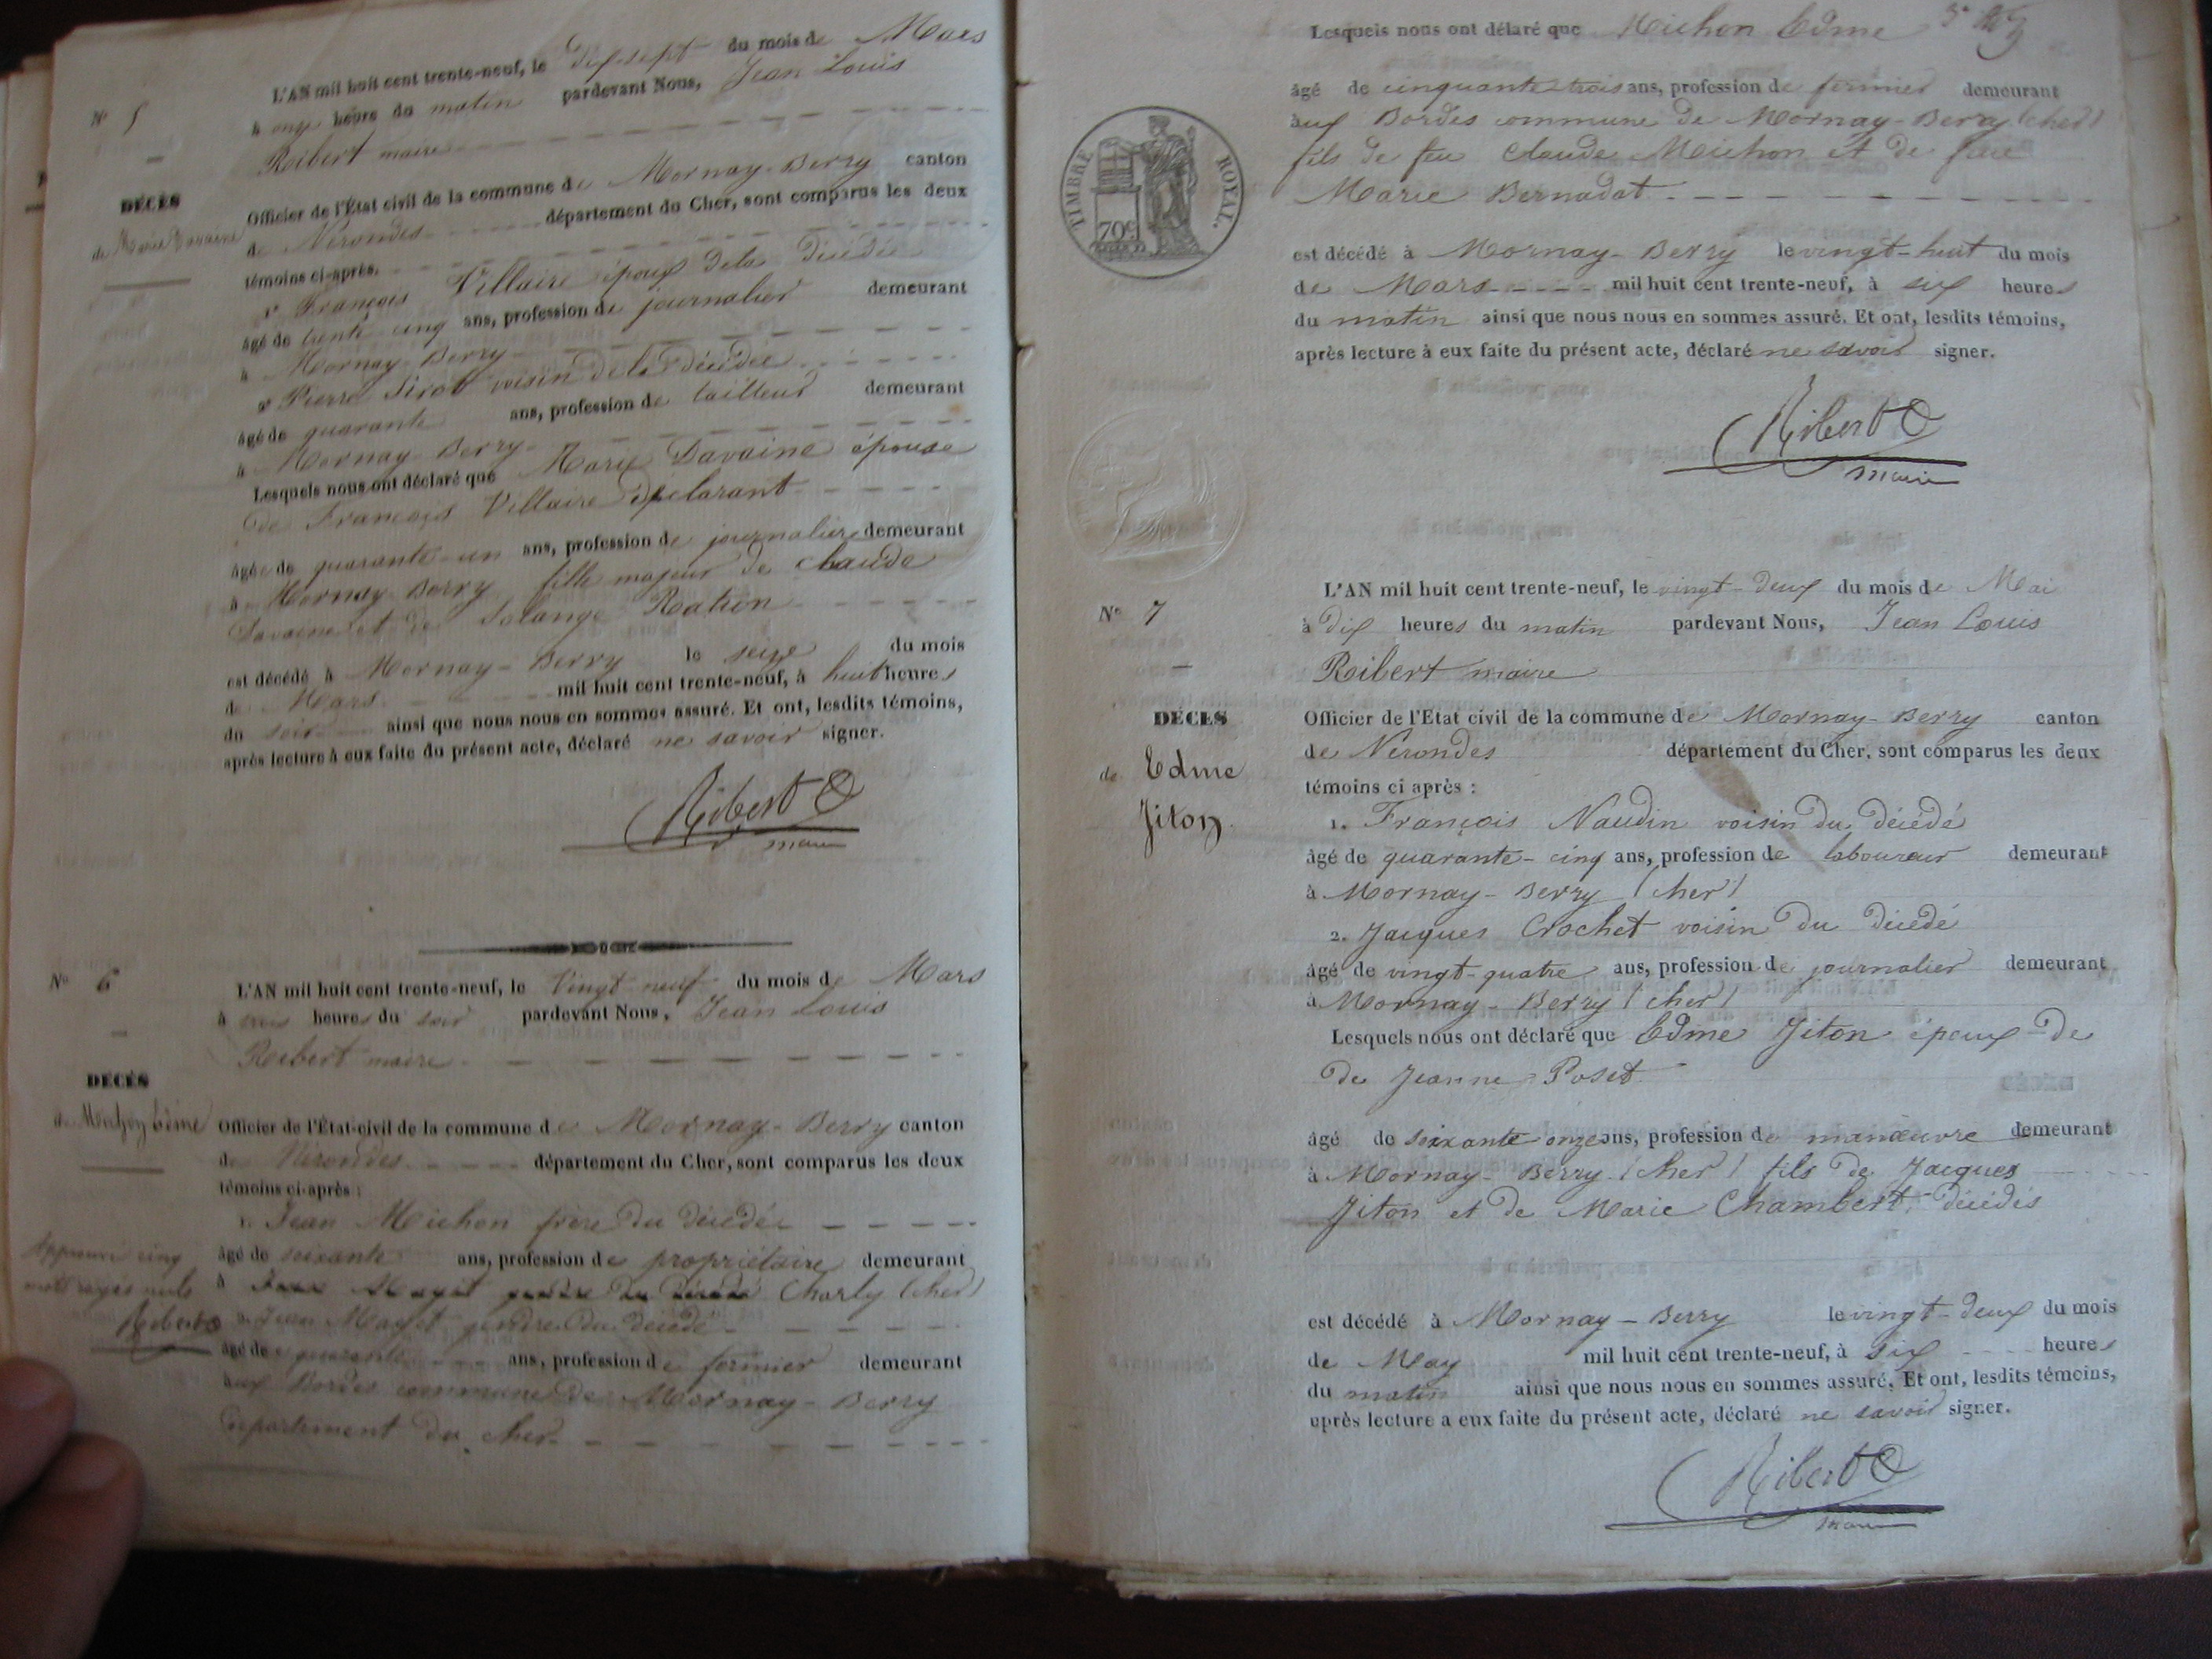 N° 5
DÉCÈS
de Marie Davaine
L'AN mil huit cent trente-neuf, le dix-sept du mois de Mars
à onze heure du matin pardevant Nous, Jean Louis
Reibert maire
Officier de l'État civil de la commune de Mornay-Berry canton
de Nérondes département du Cher, sont comparus les deux
témoins ci-après.
1° François Villaire époux de la décédée
âgé de trente cinq ans, profession de journalier demeurant
à Mornay-Berry
2° Pierre Sirot voisin de la décédée
âgé de quarante ans, profession de tailleur demeurant
à Mornay-Berry
Lesquels nous ont déclaré que Marie Davaine épouse
de François Villaire déclarant
âgée de quarante-un ans, profession de journalière demeurant
à Mornay-Berry fille majeur de Claude
Davaine et de Solange Ration
est décédé à Mornay-Berry le seize du mois
de Mars mil huit cent trente-neuf, à huit heures
du soir ainsi que nous nous en sommes assuré. Et ont, lesdits témoins,
après lecture à eux faite du présent acte, déclaré ne savoir signer.
Ribert
maire
N° 6
DÉCÈS
de Michon Edme
L'AN mil huit cent trente-neuf, le Vingt neuf du mois de Mars
à trois heures du soir pardevant Nous, Jean Louis
Reibert maire
Officier de l'État-civil de la commune de Mornay-Berry canton
de Nérondes département du Cher, sont comparus les deux
témoins ci-après :
1. Jean Michon frère du décédé
âgé de soixante ans, profession de propriétaire demeurant
à Jean Magit gendre du décédé Charly (cher)
Approuvé cinq
mots rayés nuls
Ribert
2. Jean Magit gendre du décédé
âgé de quarante ans, profession de fermier demeurant
aux Bordes commune de Mornay-Berry
département du cher
Lesquels nous ont délaré que Michon Edme
âgé de cinquante trois ans, profession de fermier demeurant
aux Bordes commune de Mornay-Berry (cher)
fils de feu Claude Michon et de feue
Marie Bernadat
TIMBRE ROYAL.
70c
est décédé à Mornay-Berry le vingt-huit du mois
de Mars mil huit cent trente-neuf, à six heures
du matin ainsi que nous nous en sommes assuré. Et ont, lesdits témoins,
après lecture à eux faite du présent acte, déclaré ne savoir signer.
Ribert
maire
N° 7
DÉCÈS
de Edme
Jiton
L'AN mil huit cent trente-neuf, le vingt-deux du mois de Mai
à dix heures du matin pardevant Nous, Jean Louis
Reibert maire
Officier de l'Etat civil de la commune de Mornay-Berry canton
de Nérondes département du Cher, sont comparus les deux
témoins ci après :
1. François Naudin voisin du décédé
âgé de quarante-cinq ans, profession de laboureur demeurant
à Mornay-Berry (cher)
2. Jacques Crochet voisin du décédé
âgé de vingt-quatre ans, profession de journalier demeurant
à Mornay-Berry (cher)
Lesquels nous ont déclaré que Edme Jiton époux de
de Jeanne Poset
âgé de soixante onze ans, profession de manœuvre demeurant
à Mornay-Berry (cher) fils de Jacques
Jiton et de Marie Chambert, décédés
est décédé à Mornay-Berry le vingt-deux du mois
de May mil huit cent trente-neuf, à six heures
du matin ainsi que nous nous en sommes assuré. Et ont, lesdits témoins,
après lecture a eux faite du présent acte, déclaré ne savoir signer.
Ribert
maire